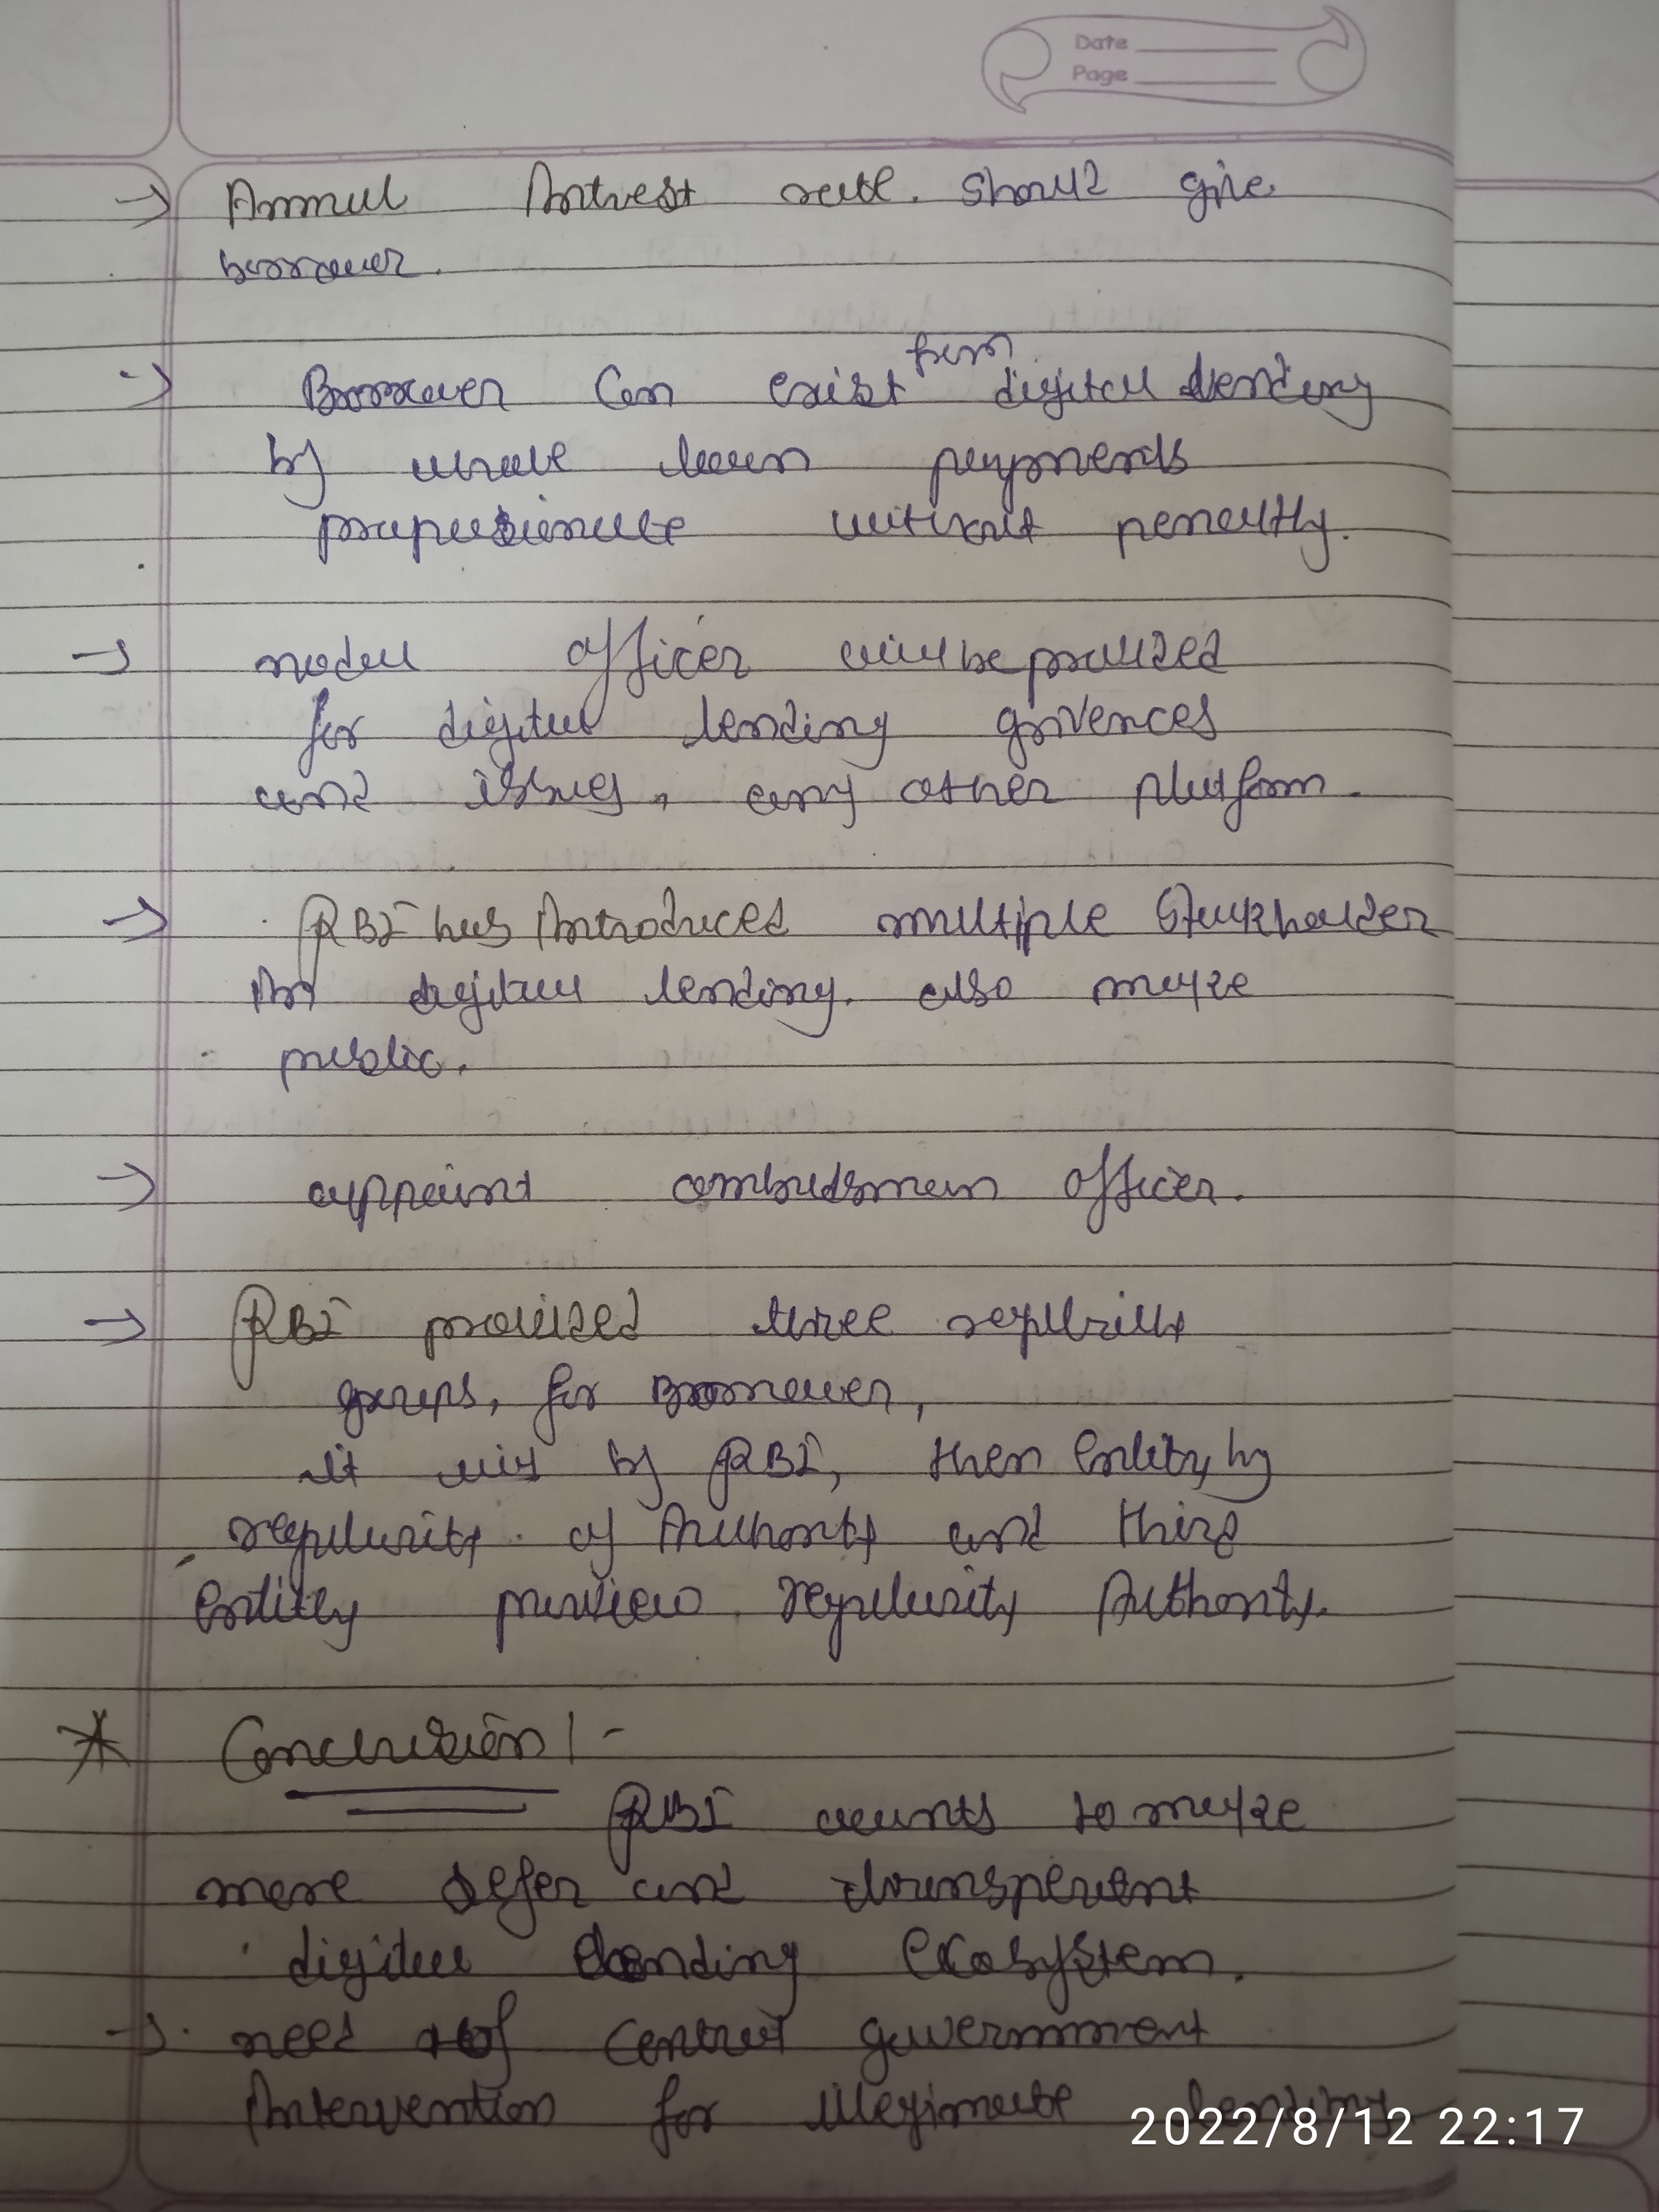 Date
Page
→ Annual Intrest rate. Should give
borrower.
→ Borrower Can exist from digital lending
by whole loan payments
propotionate without penaulty.
→ nodal officer will be provided
for digital lending grivences
and issues, any other platform.
→ RBI has Introduced multiple Stakholder
In digital lending. also make
public.
→ appoint ombudsman officer.
→ RBI provided three
groups, for Borrower,
it will by RBI, then Entity by
regularity of Authority and third
Entitiy purview regularity Authority.
* Conclusion :-
RBI wants to make
more safer and transperent
digital lending Ecosystem.
→ need of Central government
Intervention for illegimate lending
2022/8/12 22:17